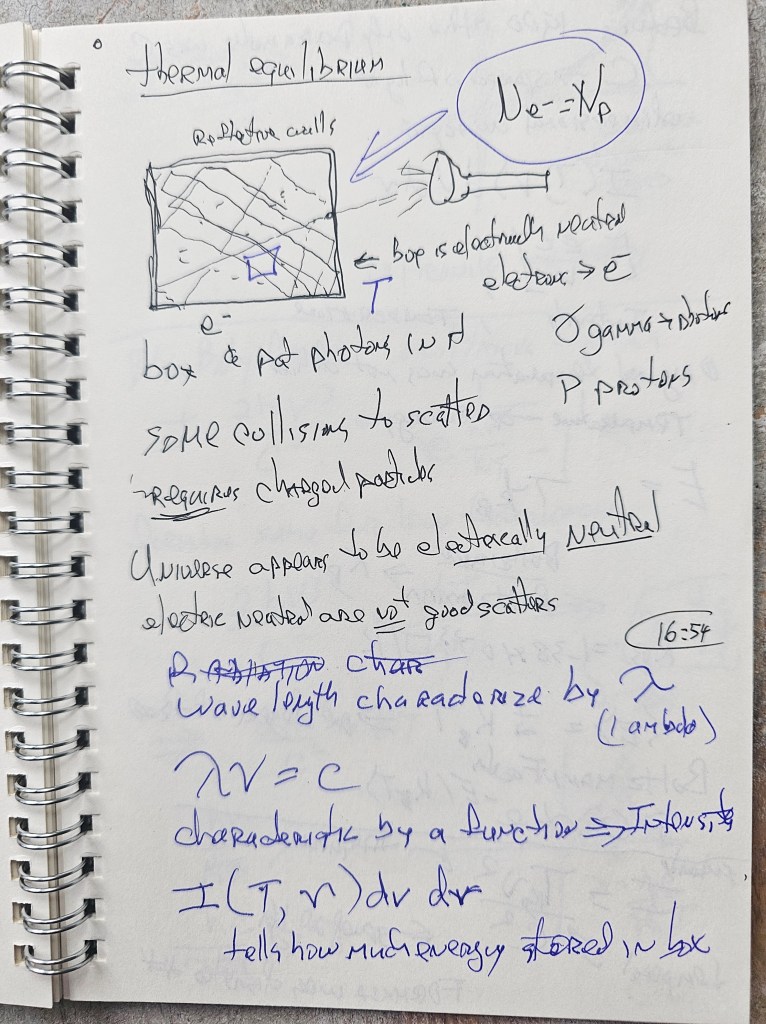 thermal equilibrium
Ne- = Np
Reflective walls
← box is electrically neutral
T
electrons → e-
e-
γ gamma → photons
box & put photons in it
P protons
some collisions to scatter
→ Requires charged particles
Universe appears to be electrically neutral
electric neutral are not good scatters
16:54
Radiation char
wave length characterize by λ
(Lambda)
λν = c
characteristic by a function ⇒ Intensity
I(T, ν)dν dv
tells how much energy stored in box